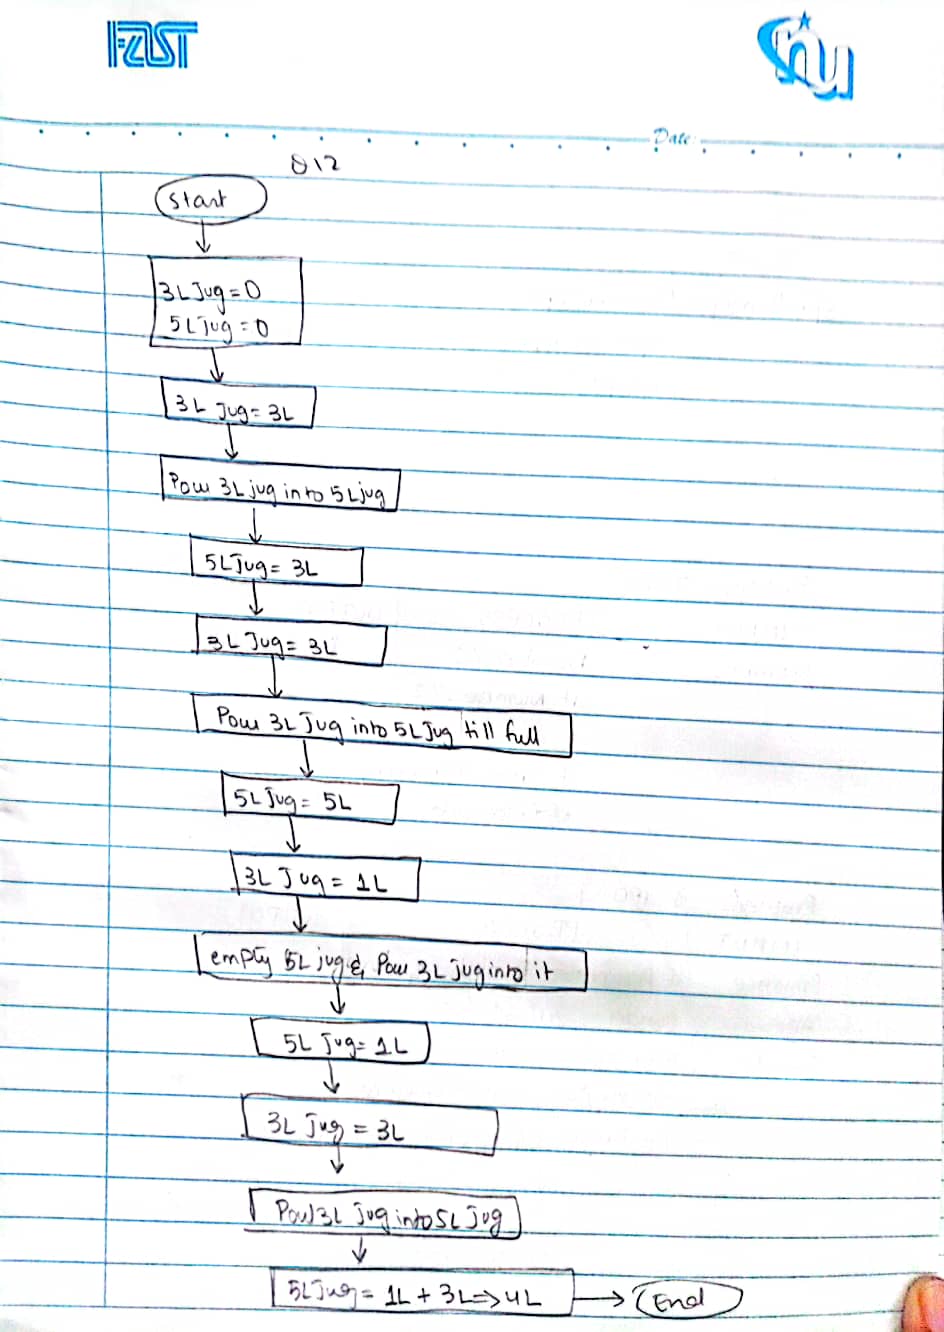 FAST
nu
Date:
Q12
Start
3L Jug = 0
5L Jug = 0
3L Jug = 3L
Pour 3L jug into 5L jug
5L Jug = 3L
3L Jug = 3L
Pour 3L Jug into 5L Jug till full
5L Jug = 5L
3L Jug = 1L
empty 5L jug & Pour 3L Jug into it
5L Jug = 1L
3L Jug = 3L
Pour 3L Jug into 5L Jug
5L Jug = 1L + 3L => 4L
End